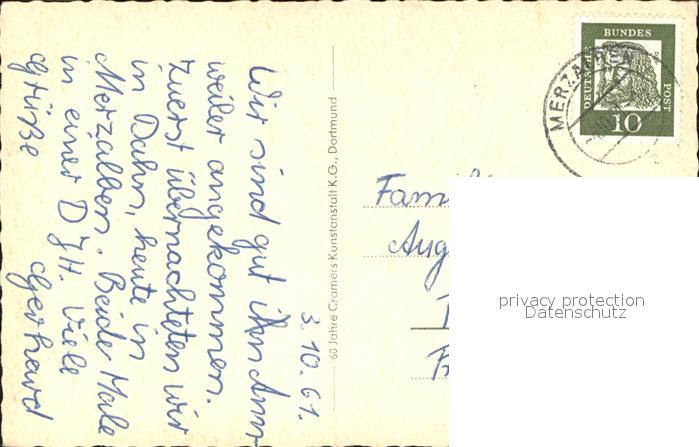 3.10.61.
Wir sind gut ihn Ann-
weiler angekommen.
Zuerst übernachteten wir
in Dahn, heute in
Merzalben. Beide Male
in einer DJH. Viele
Grüße
Gerhard
60 Jahre Cramers Kunstanstalt K.G., Dortmund
DEUTSCHE
BUNDES
POST
10
MERZALBEN
Fami
Aug
privacy protection
Datenschutz